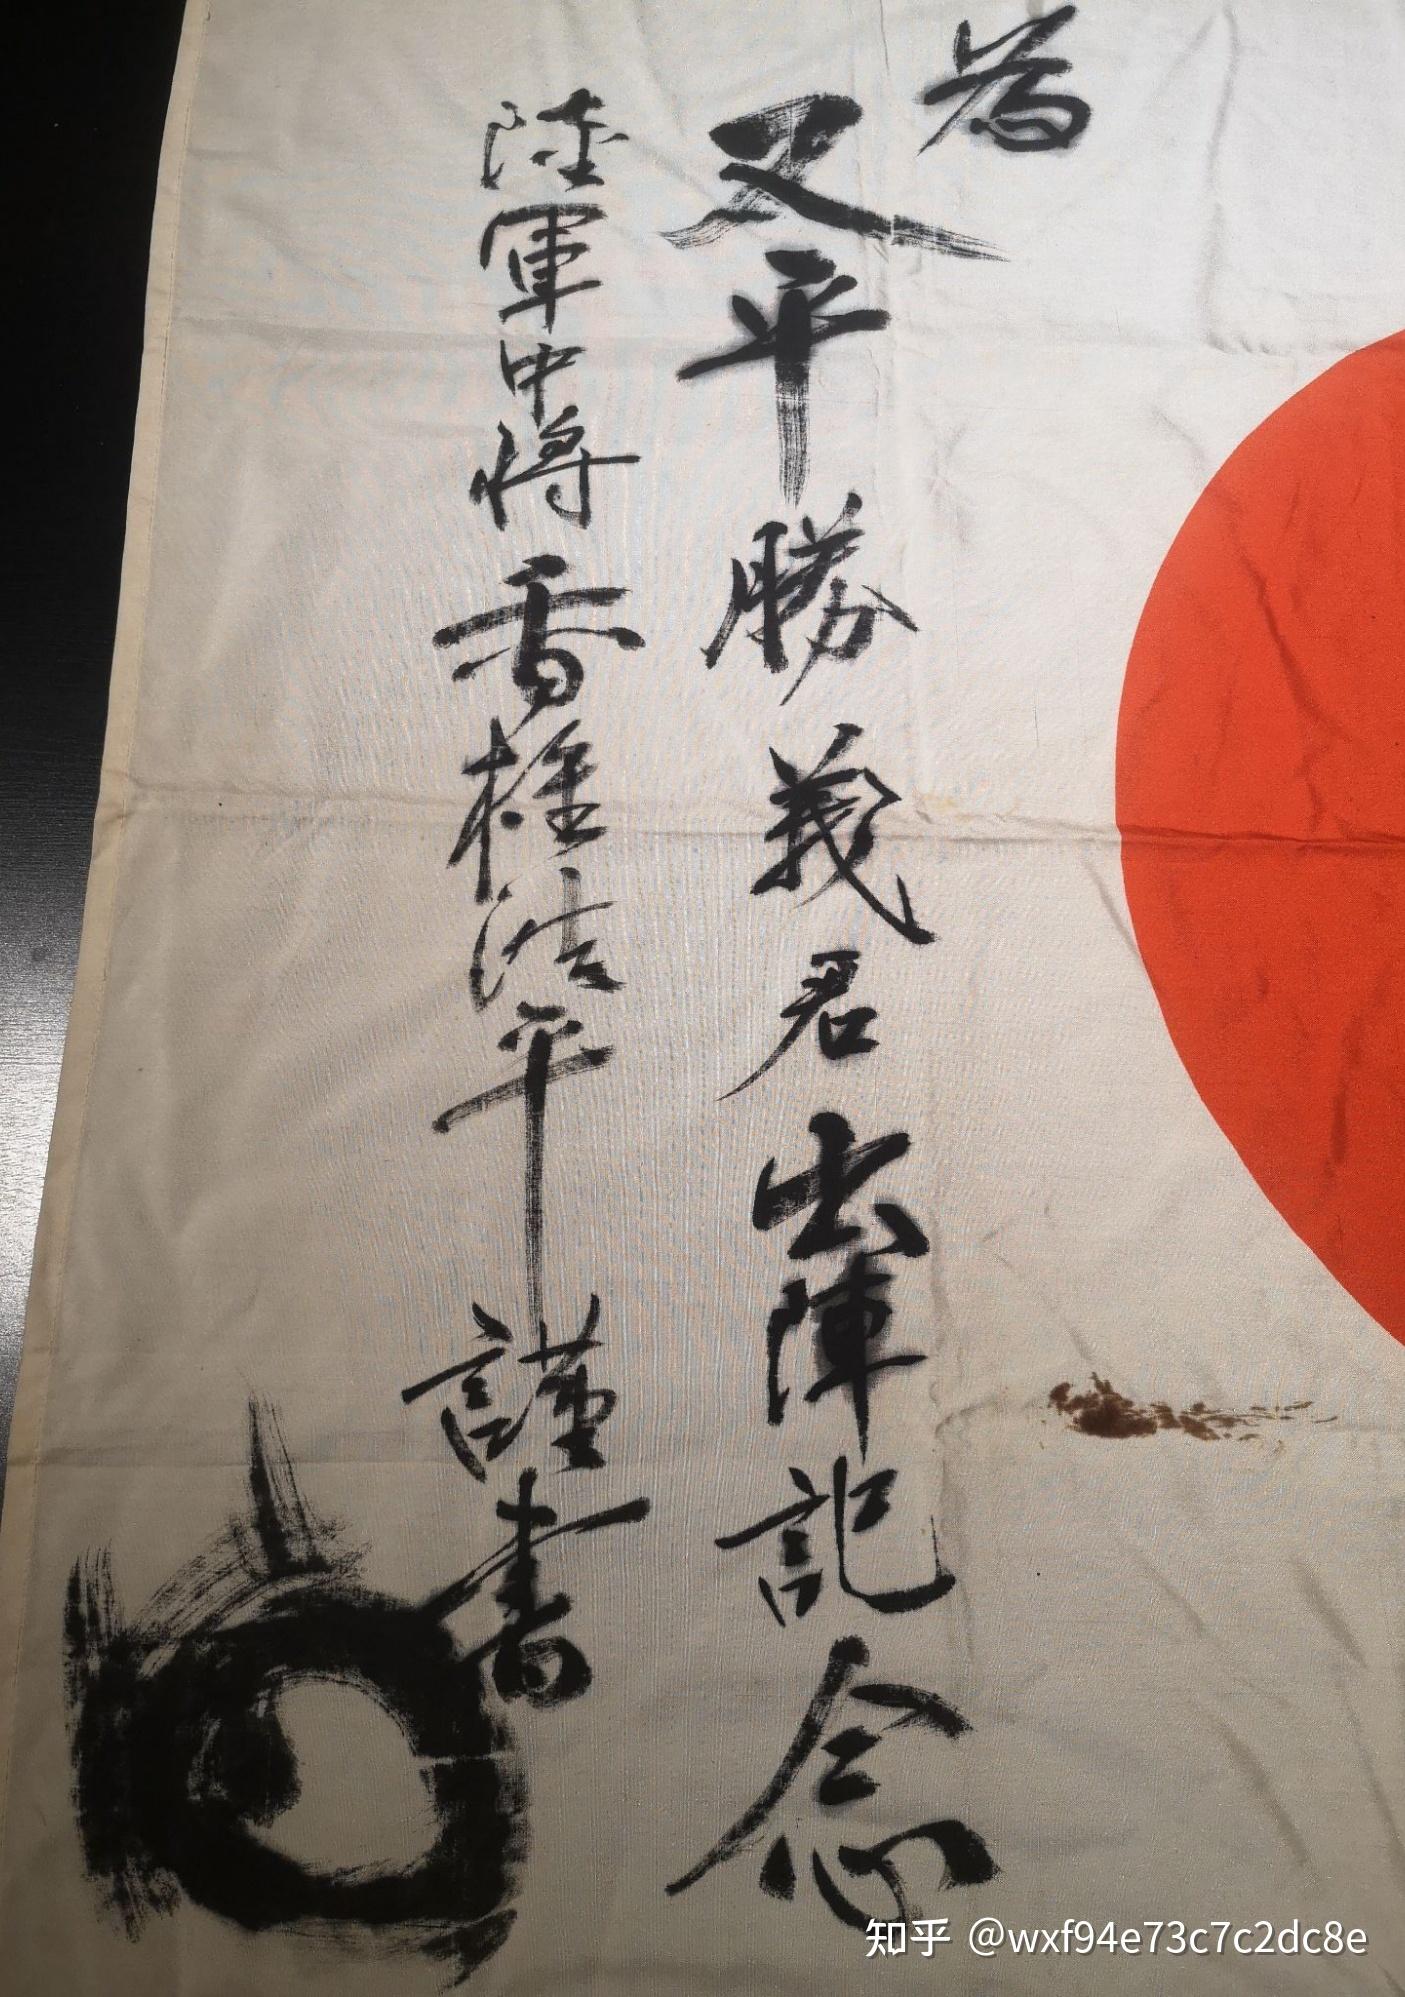 為
又平勝義君出陣記念
陸軍中将香椎浩平謹書
知乎 @wxf94e73c7c2dc8e